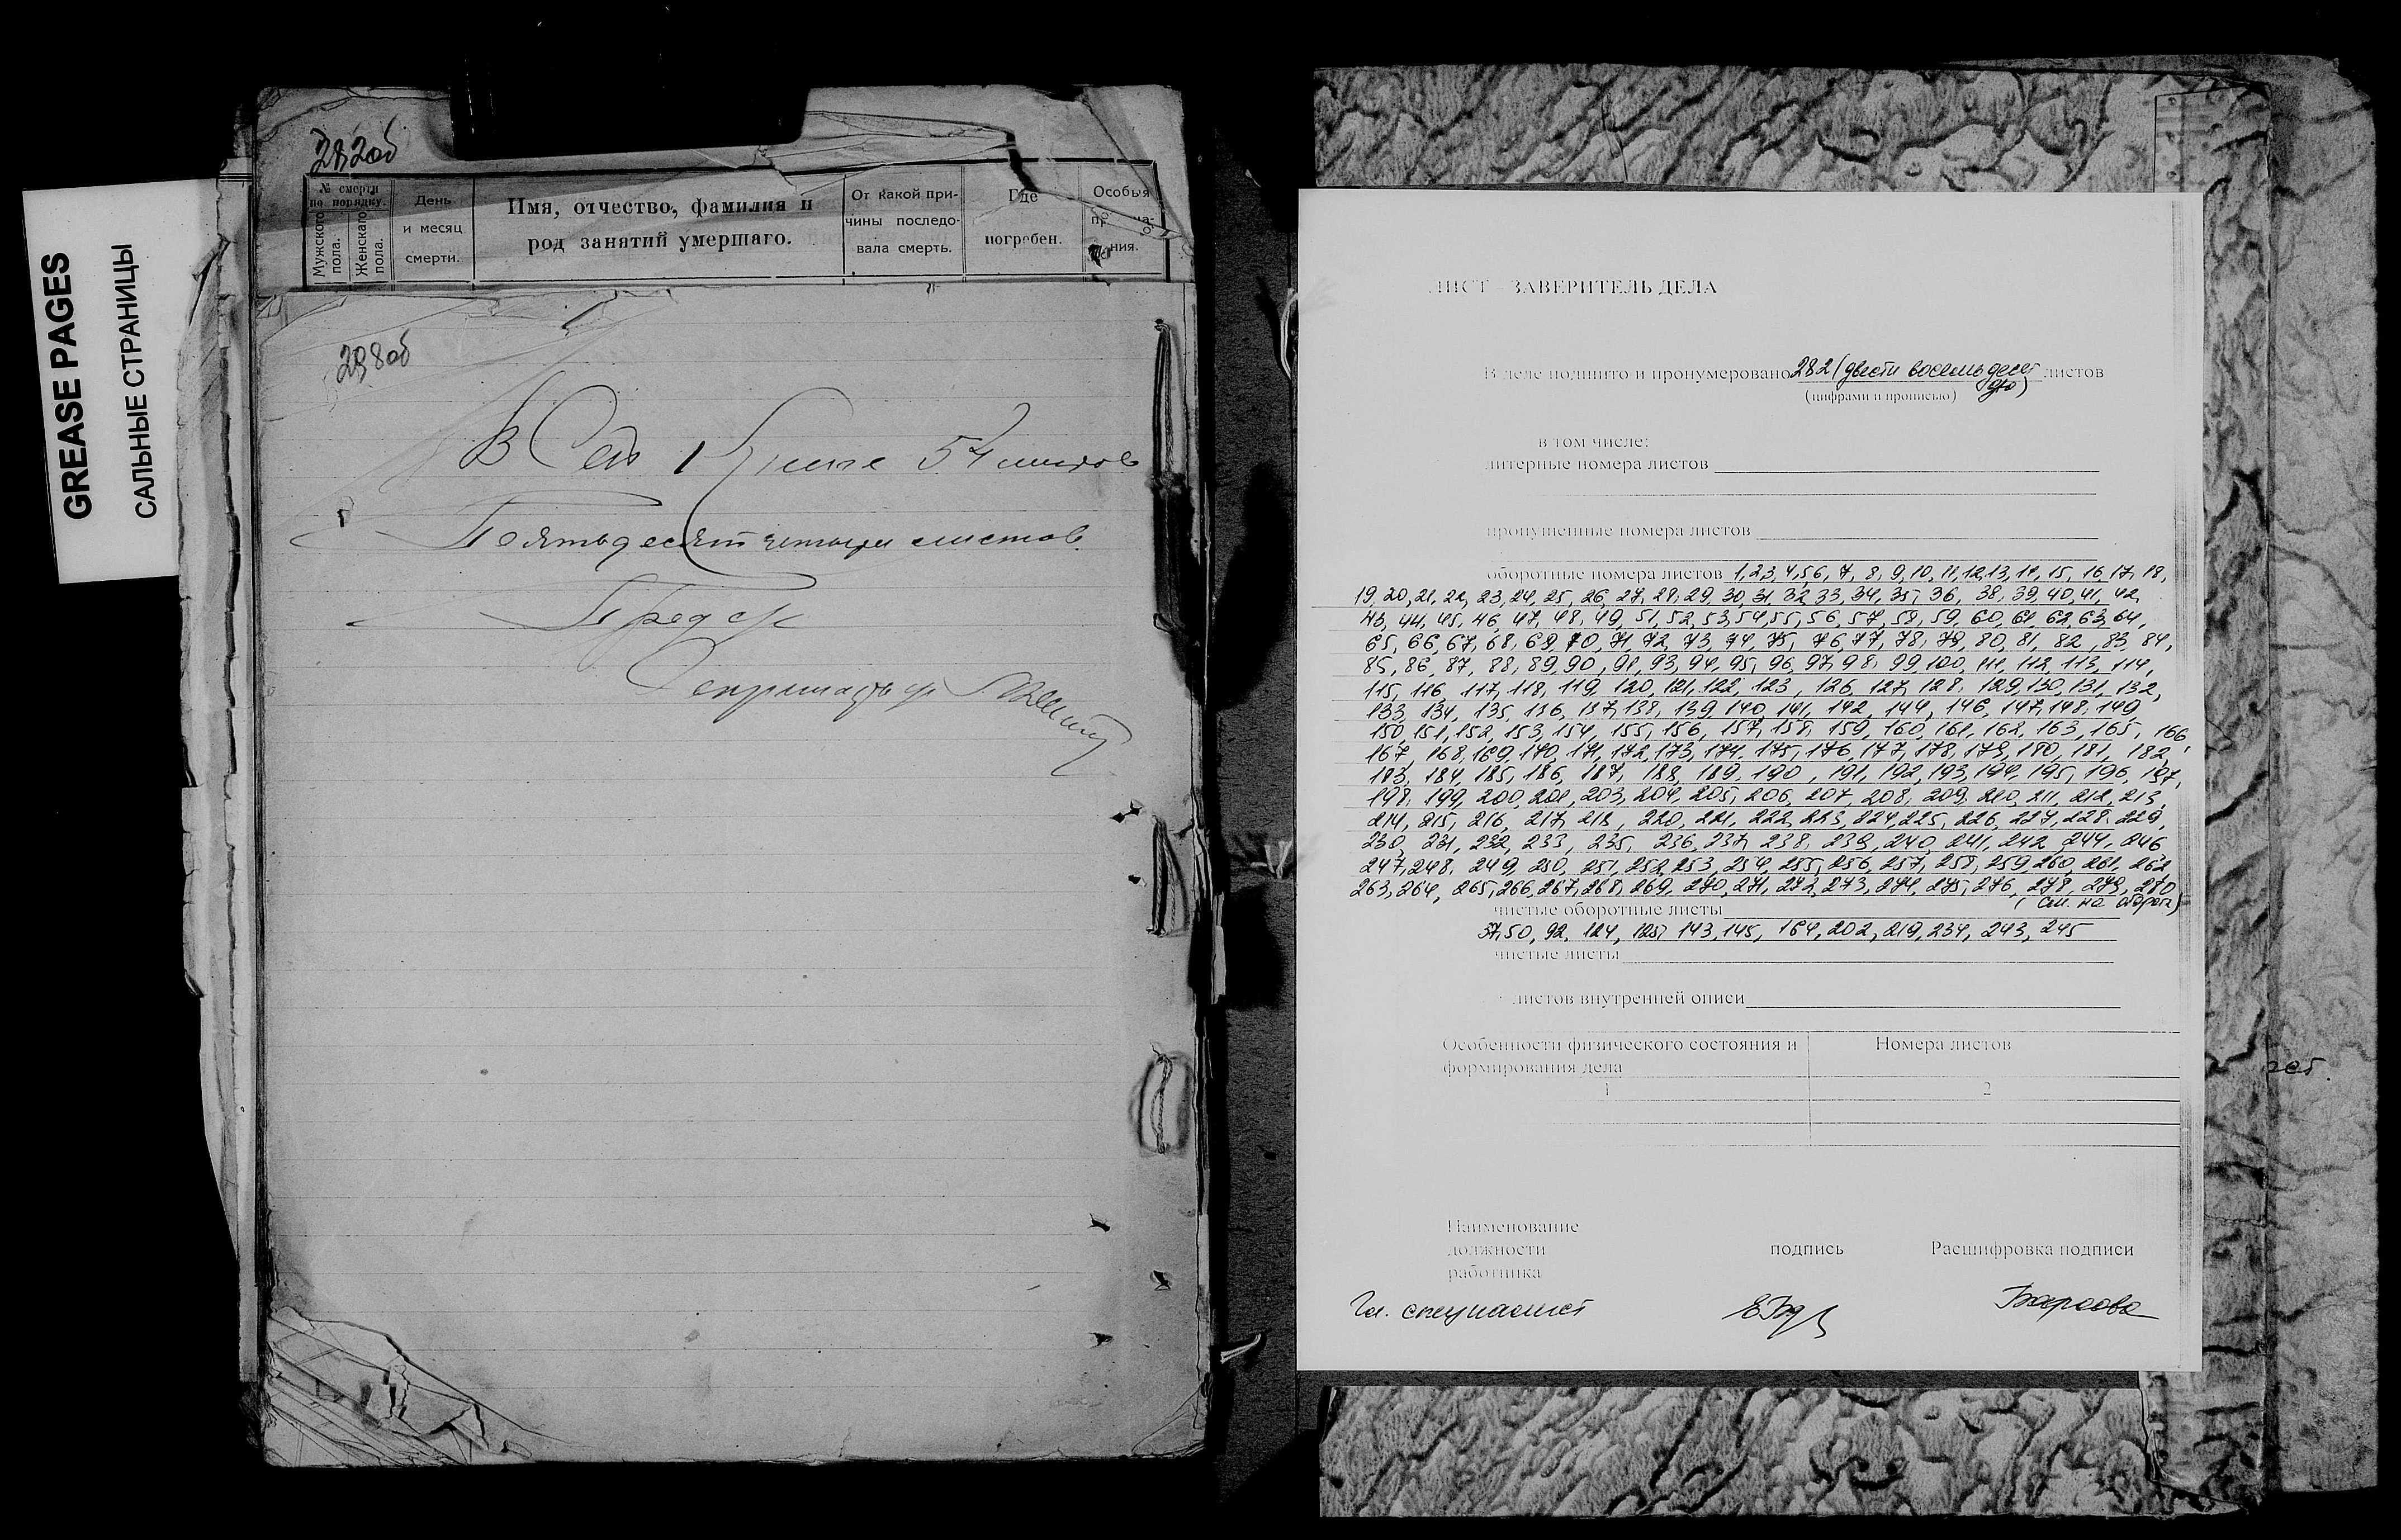 GREASE PAGES
САЛЬНЫЕ СТРАНИЦЫ
282об
№ смерти по порядку.
Мужского пола.
Женскаго пола.
День и месяц смерти.
Имя, отчество, фамилия и
род занятий умершаго.
От какой при-
чины последо-
вала смерть.
Где
погребен.
Особыя
ния.
298об
В сей Книге 54 листов
Пятьдесят четыри листов.
Пред
Секретарь
ЛИСТ - ЗАВЕРИТЕЛЬ ДЕЛА
В деле подшито и пронумеровано 282 (двести восемьдесят листов
(цифрами и прописью) два)
в том числе:
литерные номера листов
пропущенные номера листов
оборотные номера листов 1, 2, 3, 4, 5, 6, 7, 8, 9, 10, 11, 12, 13, 14, 15, 16, 17, 18,
19, 20, 21, 22, 23, 24, 25, 26, 27, 28, 29, 30, 31, 32, 33, 34, 35, 36, 38, 39, 40, 41, 42,
43, 44, 45, 46, 47, 48, 49, 51, 52, 53, 54, 55, 56, 57, 58, 59, 60, 61, 62, 63, 64,
65, 66, 67, 68, 69, 70, 71, 72, 73, 74, 75, 76, 77, 78, 79, 80, 81, 82, 83, 84,
85, 86, 87, 88, 89, 90, 91, 93, 94, 95, 96, 97, 98, 99, 100, 111, 112, 113, 114,
115, 116, 117, 118, 119, 120, 121, 122, 123, 126, 127, 128, 129, 130, 131, 132,
133, 134, 135, 136, 137, 138, 139, 140, 141, 142, 144, 146, 147, 148, 149,
150, 151, 152, 153, 154, 155, 156, 157, 158, 159, 160, 161, 162, 163, 165, 166,
167, 168, 169, 170, 171, 172, 173, 174, 175, 176, 177, 178, 179, 180, 181, 182,
183, 184, 185, 186, 187, 188, 189, 190, 191, 192, 193, 194, 195, 196, 197,
198, 199, 200, 201, 203, 204, 205, 206, 207, 208, 209, 210, 211, 212, 213,
214, 215, 216, 217, 218, 220, 221, 222, 223, 224, 225, 226, 227, 228, 229,
230, 231, 232, 233, 235, 236, 237, 238, 239, 240, 241, 242, 244, 246
247, 248, 249, 250, 251, 252, 253, 254, 255, 256, 257, 258, 259, 260, 261, 262
263, 264, 265, 266, 267, 268, 269, 270, 271, 272, 273, 274, 275, 276, 278, 279, 280
(см. на обороте)
чистые оборотные листы
37, 50, 92, 124, 125, 143, 145, 164, 202, 219, 234, 243, 245
чистые листы
листов внутренней описи
Особенности физического состояния и
формирования дела
Номера листов
1 2
Наименование
должности
работника
подпись
Расшифровка подписи
Гл. специалист